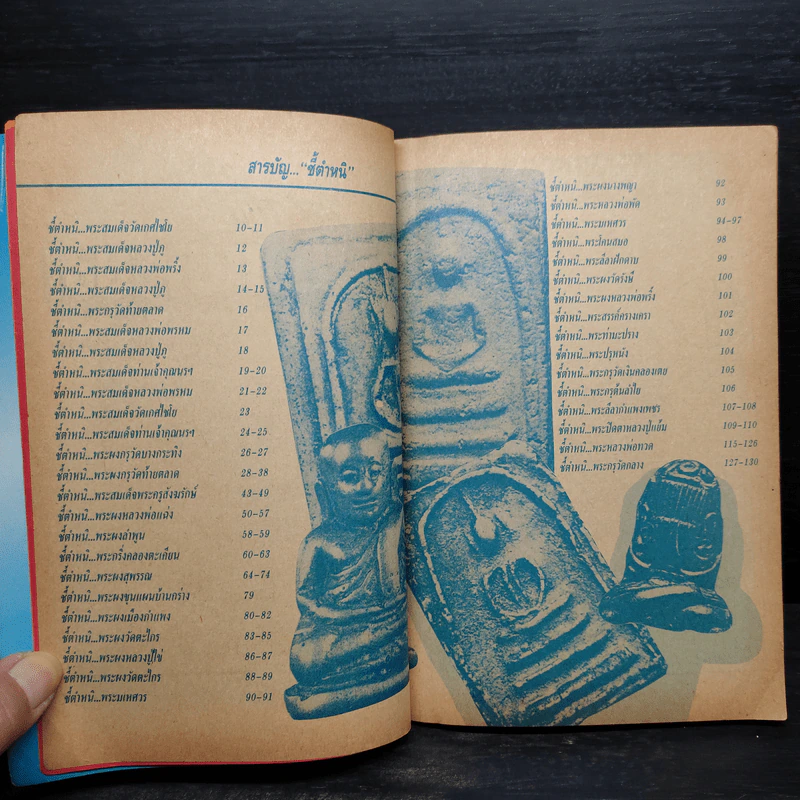 สารบัญ..."ชี้ตำหนิ"
ชี้ตำหนิ...พระสมเด็จวัดเกศไชโย 10-11
ชี้ตำหนิ...พระสมเด็จหลวงปู่ภู 12
ชี้ตำหนิ...พระสมเด็จหลวงพ่อพริ้ง 13
ชี้ตำหนิ...พระสมเด็จหลวงปู่ภู 14-15
ชี้ตำหนิ...พระกรุวัดท้ายตลาด 16
ชี้ตำหนิ...พระสมเด็จหลวงพ่อพรหม 17
ชี้ตำหนิ...พระสมเด็จหลวงปู่ภู 18
ชี้ตำหนิ...พระสมเด็จท่านเจ้าคุณนรฯ 19-20
ชี้ตำหนิ...พระสมเด็จหลวงพ่อพรหม 21-22
ชี้ตำหนิ...พระสมเด็จวัดเกศไชโย 23
ชี้ตำหนิ...พระสมเด็จท่านเจ้าคุณนรฯ 24-25
ชี้ตำหนิ...พระผงกรุวัดบางกระทิง 26-27
ชี้ตำหนิ...พระผงกรุวัดท้ายตลาด 28-38
ชี้ตำหนิ...พระสมเด็จพระครูสังฆรักษ์ 43-49
ชี้ตำหนิ...พระผงหลวงพ่อแฉ่ง 50-57
ชี้ตำหนิ...พระผงลำพูน 58-59
ชี้ตำหนิ...พระกริ่งคลองตะเคียน 60-63
ชี้ตำหนิ...พระผงสุพรรณ 64-74
ชี้ตำหนิ...พระผงขุนแผนบ้านกร่าง 79
ชี้ตำหนิ...พระผงเมืองกำแพง 80-82
ชี้ตำหนิ...พระผงวัดตะไกร 83-85
ชี้ตำหนิ...พระผงหลวงปู่ไข่ 86-87
ชี้ตำหนิ...พระผงวัดตะไกร 88-89
ชี้ตำหนิ...พระมเหศวร 90-91
ชี้ตำหนิ...พระผงนางพญา 92
ชี้ตำหนิ...พระหลวงพ่อพัด 93
ชี้ตำหนิ...พระมเหศวร 94-97
ชี้ตำหนิ...พระโคนสมอ 98
ชี้ตำหนิ...พระลีลาฝักดาบ 99
ชี้ตำหนิ...พระผงวัดรังษี 100
ชี้ตำหนิ...พระผงหลวงพ่อพริ้ง 101
ชี้ตำหนิ...พระสรรค์คางเครา 102
ชี้ตำหนิ...พระท่ามะปราง 103
ชี้ตำหนิ...พระปรุหนัง 104
ชี้ตำหนิ...พระกรุวัดเงินคลองเตย 105
ชี้ตำหนิ...พระกรุต้นลำไย 106
ชี้ตำหนิ...พระลีลากำแพงเพชร 107-108
ชี้ตำหนิ...พระปิดตาหลวงปู่แย้ม 109-110
ชี้ตำหนิ...พระหลวงพ่อทวด 115-126
ชี้ตำหนิ...พระกรุวัดกลาง 127-130